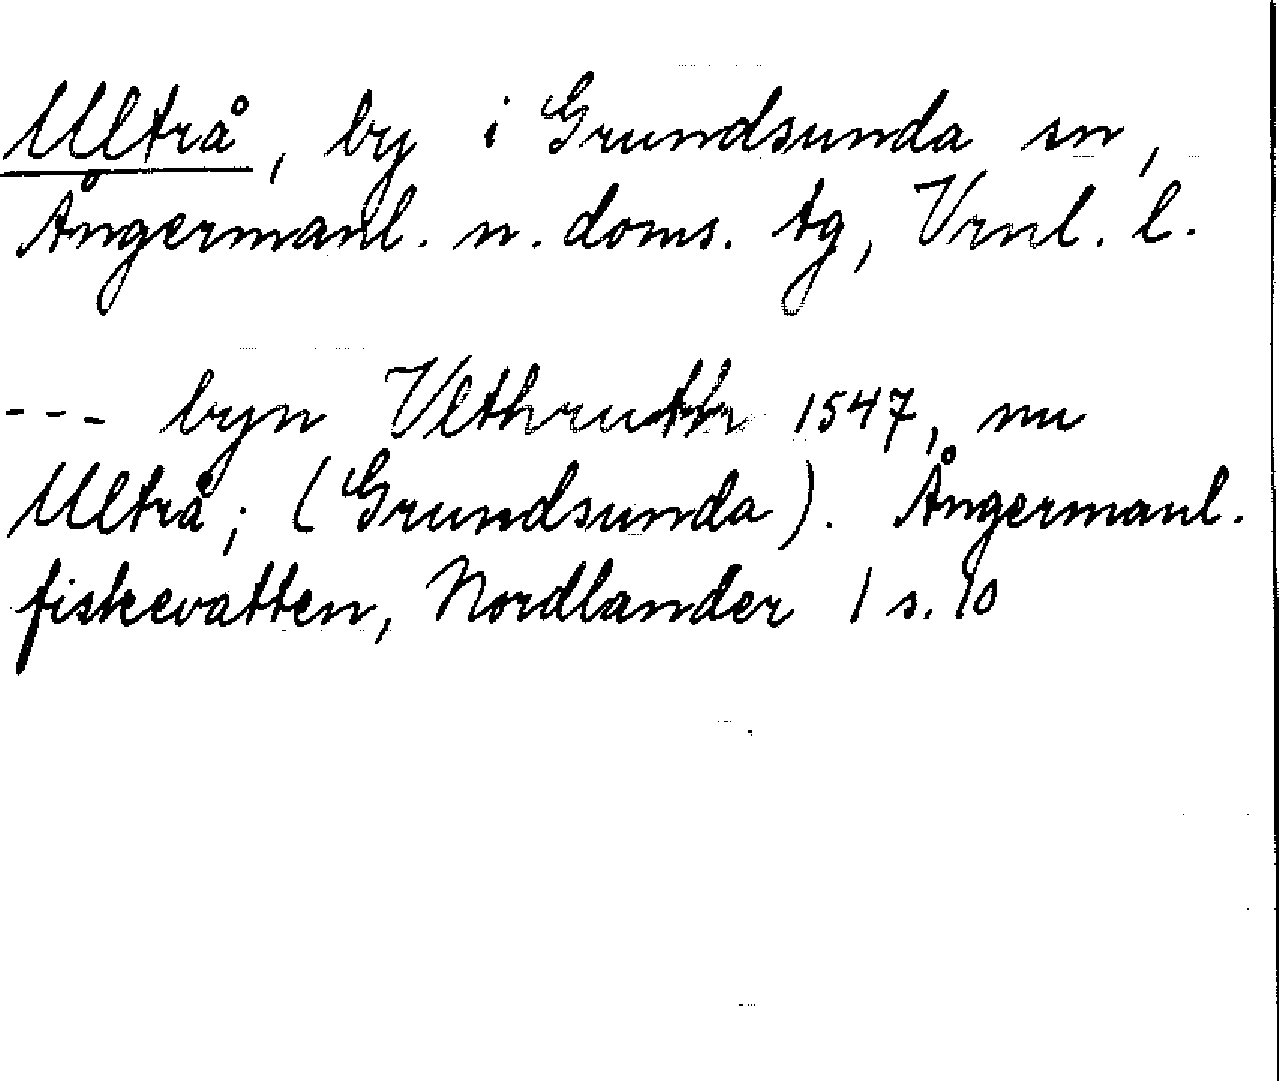 Ultrå, by i Grundsunda sn,
Ångermanl. n. doms. tg, Vrnl. l.
--- byn Vlthruth 1547, nu
Ultrå; (Grundsunda). Ångermanl.
fiskevatten, Nordlander I s. 10